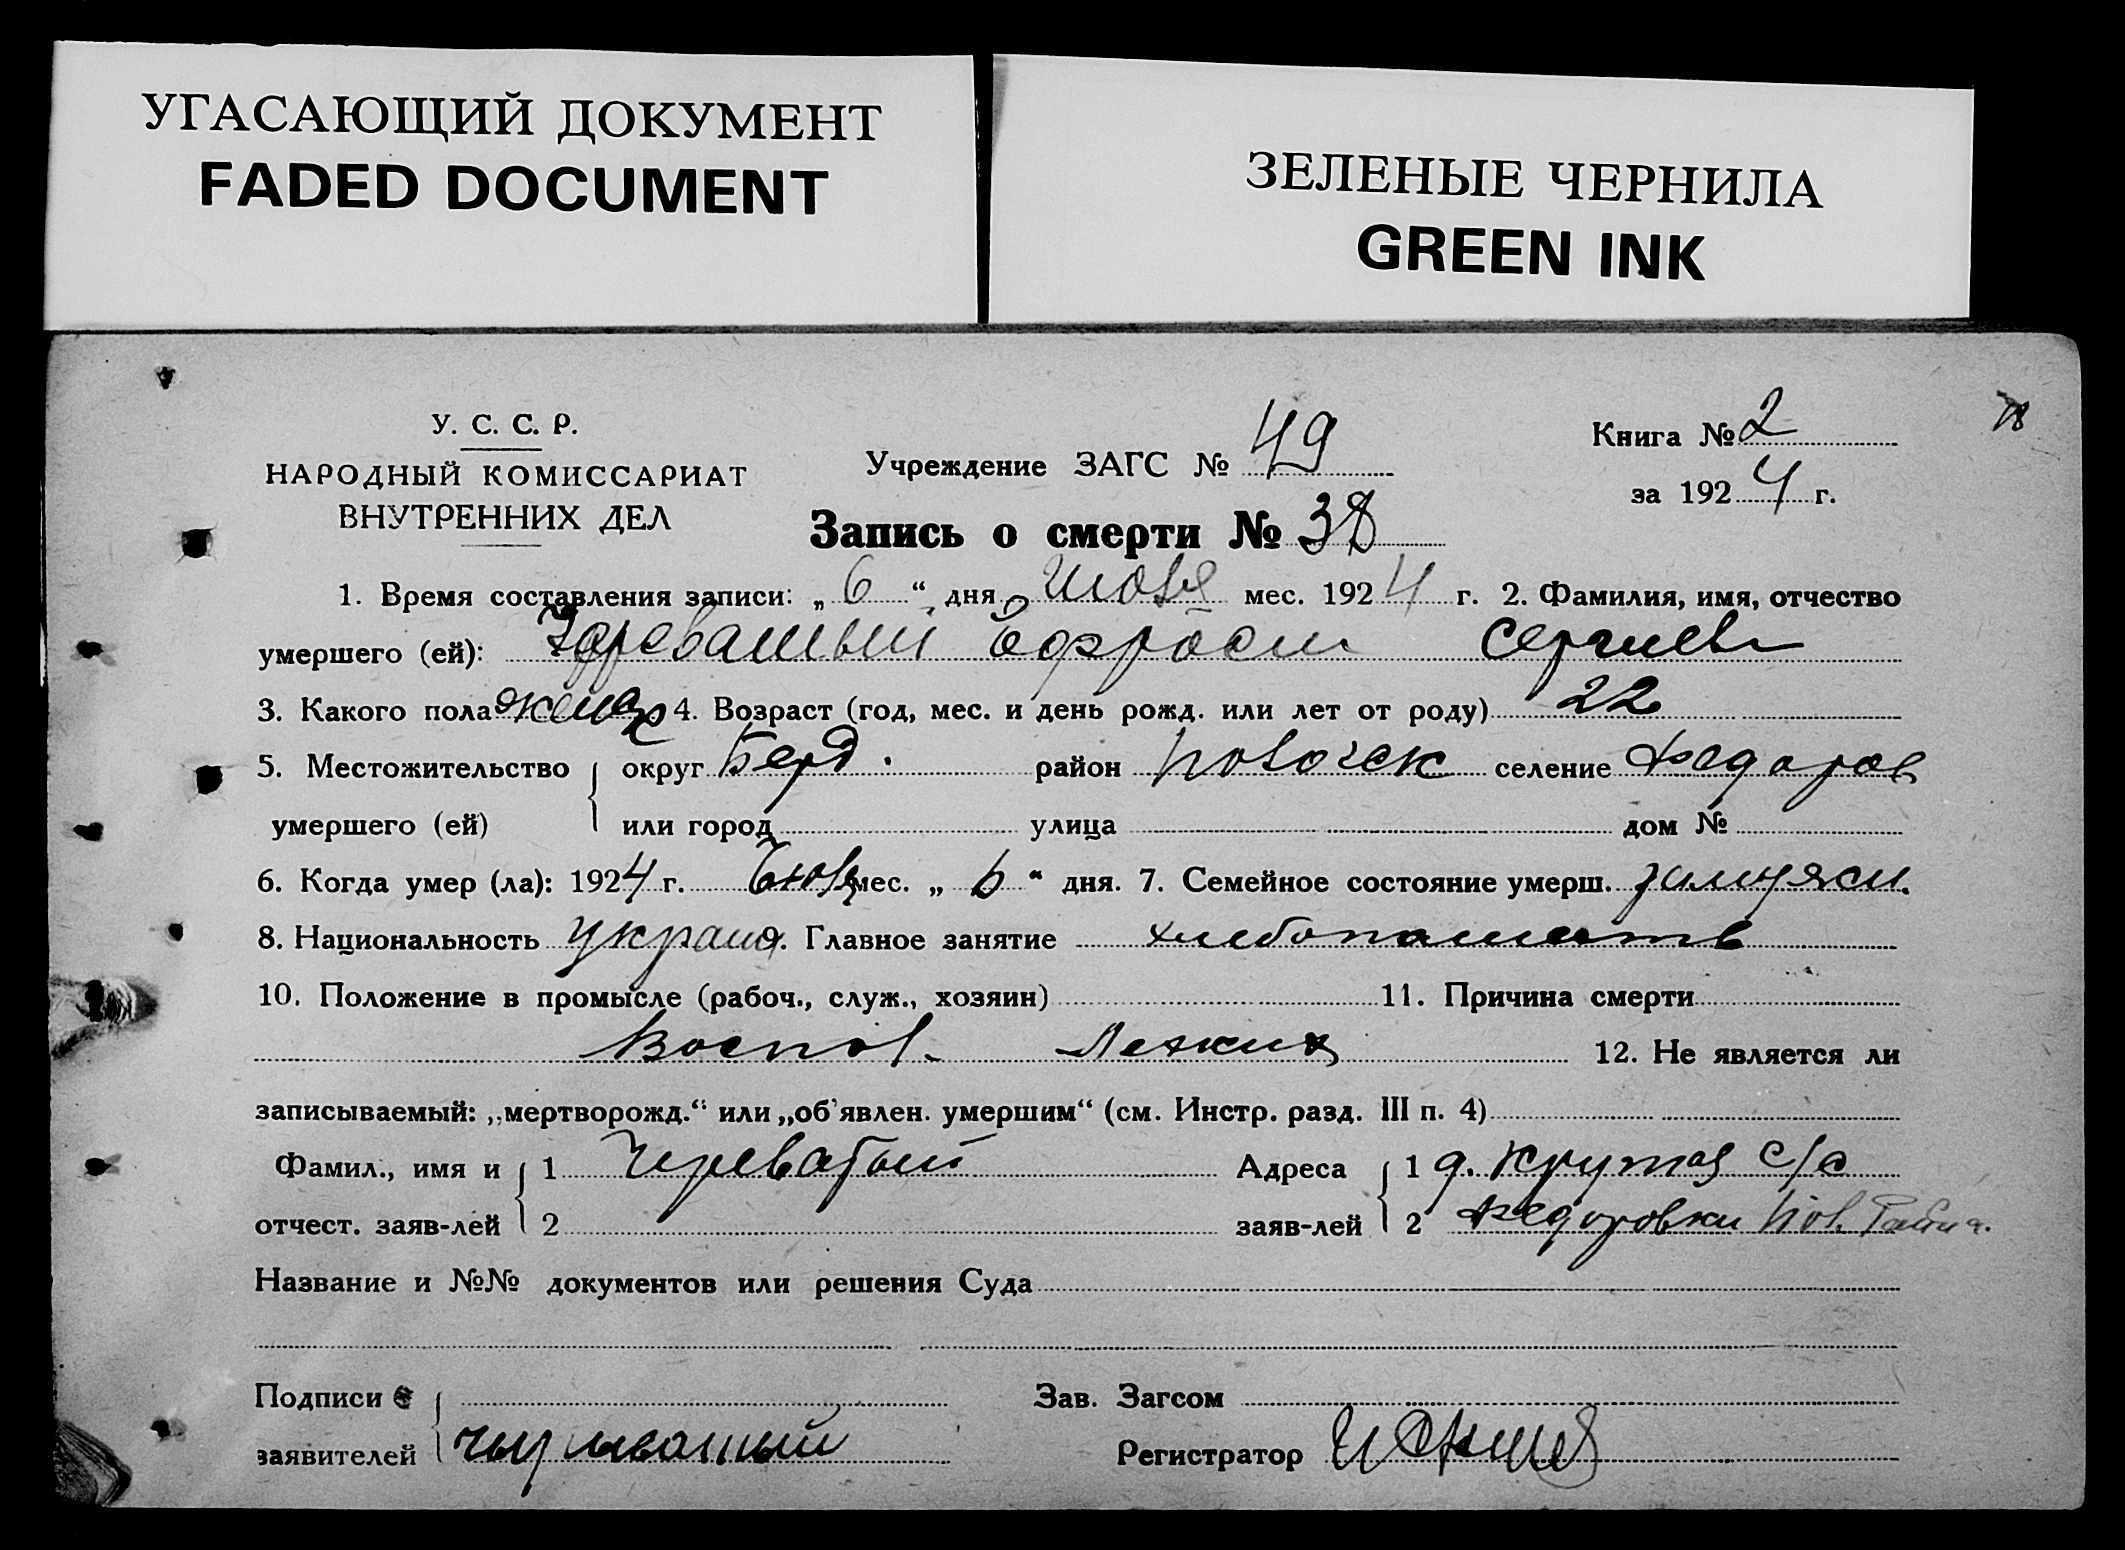 УГАСАЮЩИЙ ДОКУМЕНТ
FADED DOCUMENT
ЗЕЛЕНЫЕ ЧЕРНИЛА
GREEN INK
У. С. С. Р.
НАРОДНЫЙ КОМИССАРИАТ
ВНУТРЕННИХ ДЕЛ
Учреждение ЗАГС № 49
Книга № 2
за 1924 г.
18
Запись о смерти № 38
1. Время составления записи: „6“ дня Июля мес. 1924 г. 2. Фамилия, имя, отчество
умершего (ей): Череватый Сергиев
3. Какого пола женск 4. Возраст (год, мес. и день рожд. или лет от роду) 22
5. Местожительство округ Берд. район Новогек селение Федоров
умершего (ей) или город улица дом №
6. Когда умер (ла): 1924 г. мес. „6“ дня. 7. Семейное состояние умерш. замужем.
8. Национальность украин 9. Главное занятие хлебопашеств
10. Положение в промысле (рабоч., служ., хозяин) 11. Причина смерти
Воспол. Легких 12. Не является ли
записываемый: „мертворожд.“ или „об'явлен. умершим“ (см. Инстр. разд. III п. 4)
Фамил., имя и 1 Череватый Адреса 1 д. Крутая с/с
отчест. заяв-лей 2 заяв-лей 2 Федоровки Нов. Района.
Название и №№ документов или решения Суда
Подписи Зав. Загсом
заявителей Регистратор